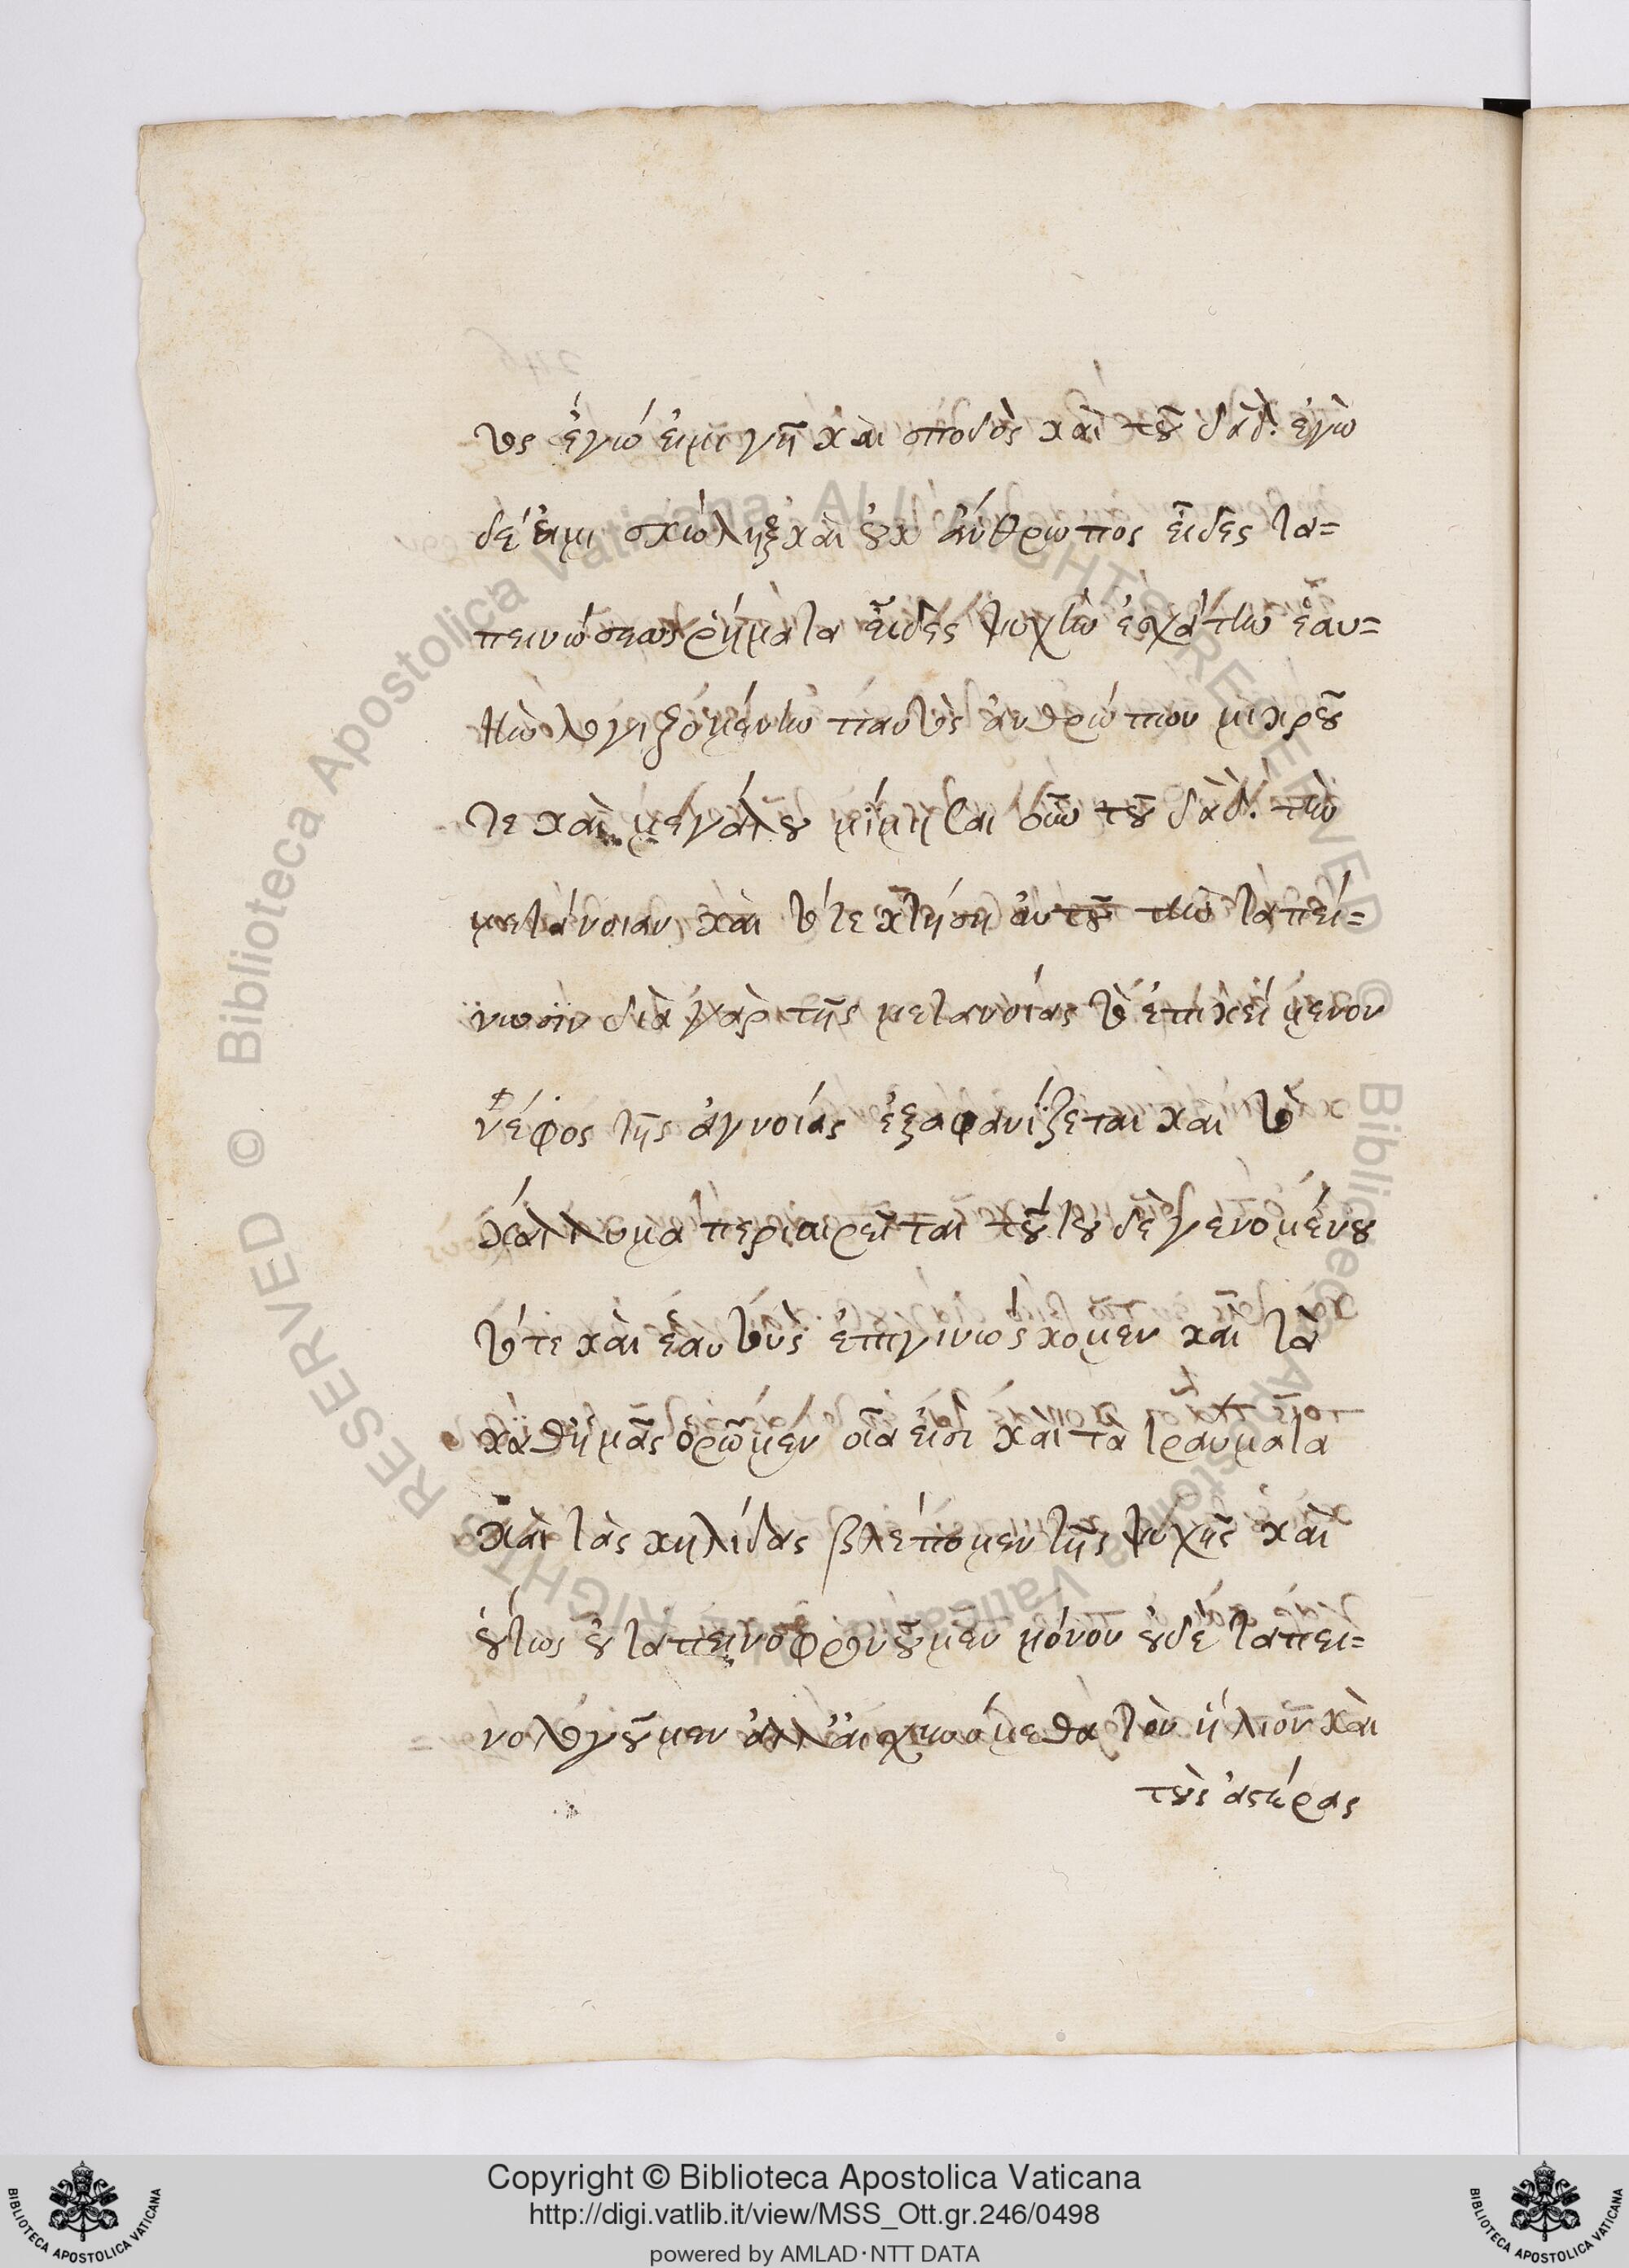 τος ἐγώ εἰμι γῆ καὶ σποδὸς καὶ τοῦ δαδ. ἐγὼ
δέ εἰμι σκώληξ καὶ οὐκ ἄνθρωπος εἶδες τα=
πεινώσεως ῥήματα εἶδες ψυχὴν ἐσχάτην ἑαυ=
τὴν λογιζομένην παντὸς ἀνθρώπου μικροῦ
τε καὶ μεγάλου μίμησαι οὖν τοῦ δαδ. τὴν
μετάνοιαν καὶ τότε κτήσῃ αὐτοῦ τὴν ταπεί=
νωσιν διὰ γὰρ τῆς μετανοίας τὸ ἐπικείμενον
νέφος τῆς ἀγνοίας ἐξαφανίζεται καὶ τὸ
κάλλυμα περιαιρεῖται τούτου δε γενομένου
τότε καὶ ἑαυτοὺς ἐπιγινώσκομεν καὶ τὰ
καθἡμᾶς ὁρῶμεν οἷα εἰσι καὶ τὰ τραύματα
καὶ τὰς κηλίδας βλέπομεν τῆς ψυχῆς καὶ
οὕτως οὐ ταπεινοφρονοῦμεν μόνον οὐδὲ ταπει=
νολογοῦμεν ἀλλ αἰσχυνόμεθα τὸν ἥλιον καὶ
τοὺς ἀστέρας
Copyright © Biblioteca Apostolica Vaticana
http://digi.vatlib.it/view/MSS_Ott.gr.246/0498
powered by AMLAD·NTT DATA
BIBLIOTECA APOSTOLICA VATICANA
BIBLIOTECA APOSTOLICA VATICANA